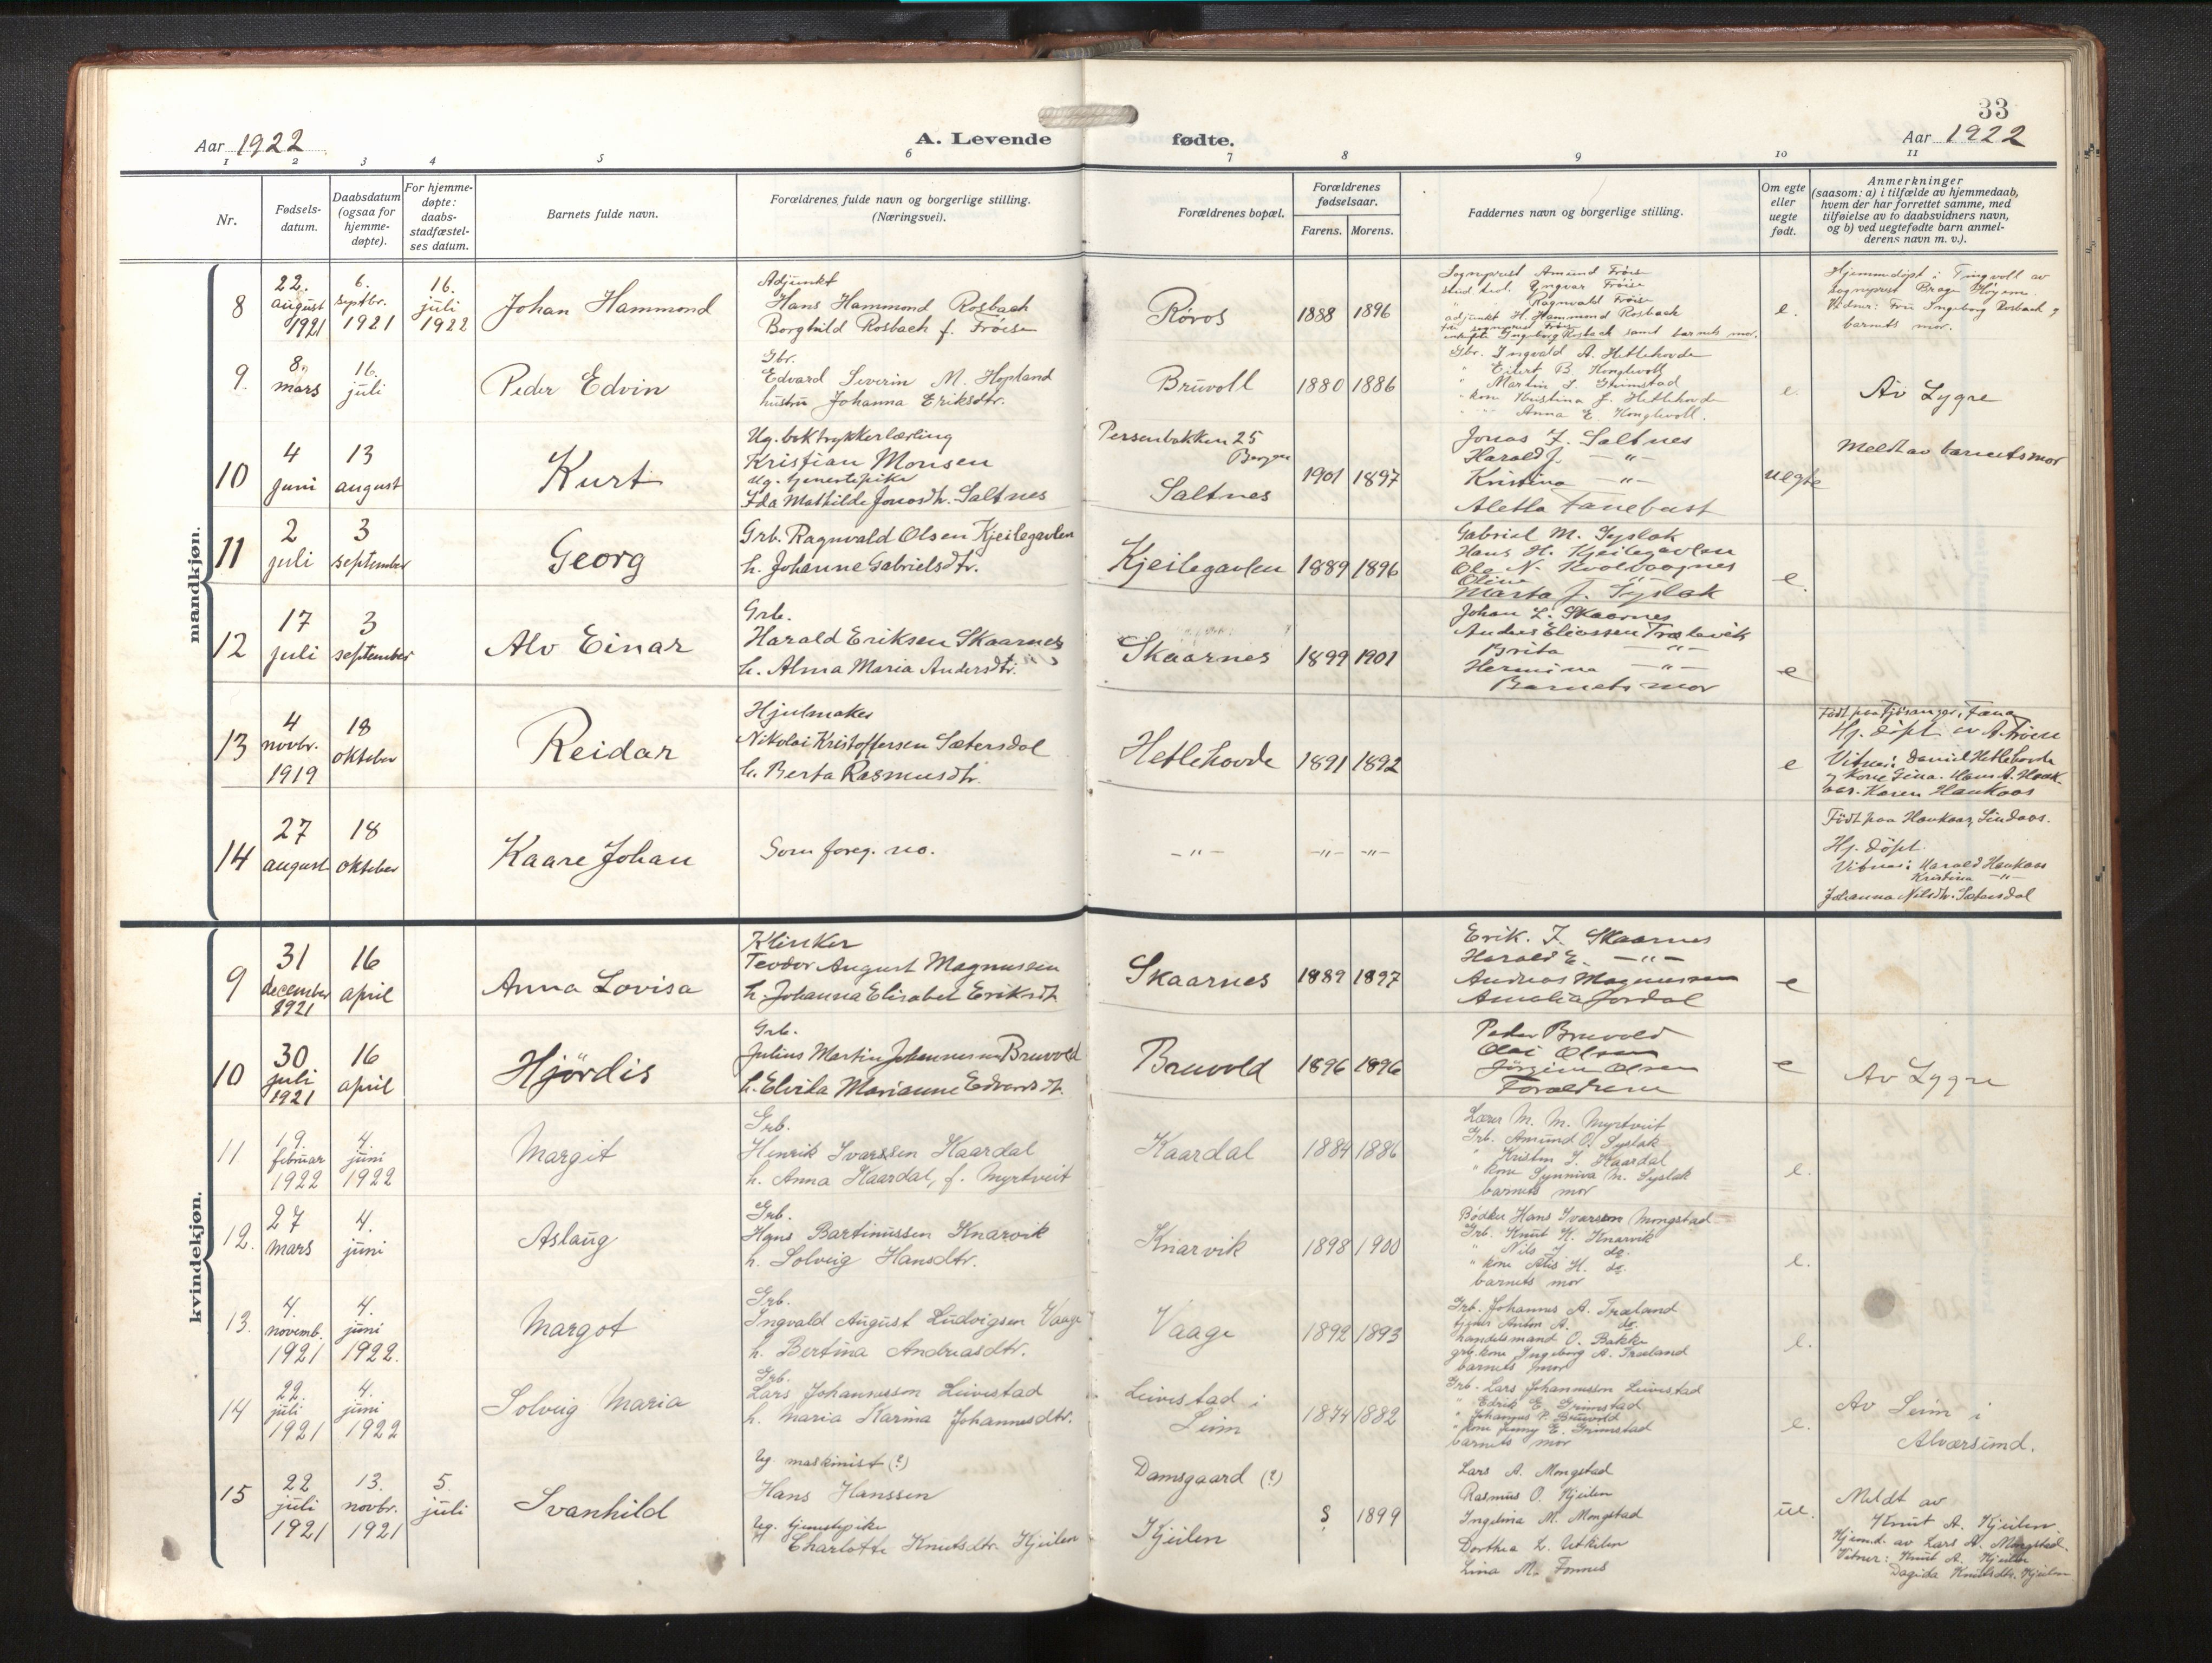 33
Aar 1922
A. Levende fødte.
Aar 1922
1 2 3 4 5 6 7 8 9 10 11
Nr.
Fødsels-
datum.
Daabsdatum
(ogsaa for
hjemme-
døpte).
For hjemme-
døpte:
daabs-
stadfæstel-
ses datum.
Barnets fulde navn.
Forældrenes fulde navn og borgerlige stilling.
(Næringsvei).
Forældrenes bopæl.
Forældrenes
fødselsaar.
Farens. Morens.
Faddernes navn og borgerlige stilling.
Om egte
eller
uegte
født.
Anmerkninger
(saasom: a) i tilfælde av hjemmedaab,
hvem der har forrettet samme, med
tilføielse av to daabsvidners navn,
og b) ved uegtefødte barn anmel-
derens navn m. v.).
mandkjøn.
8
22.
august
1921
6.
septbr.
1921
16.
juli
1922
Johan Hammond
Adjunkt
Hans Hammond Rosbach
Borghild Rosbach f. Fröise
Røros
1888 1896
Sogneprest Amund Fröise
stud. teol. Yngvar Fröise
" Ragnvald Fröise
adjunkt H. Hammond Rosbach
fru sogneprest Fröise
Ingeborg Rosbach samt barnets mor.
e.
Hjemmedøpt i Tingvoll av
sogneprest Brage Höyem.
Vidner: Fru Ingeborg Rosbach og
barnets mor.
9.
8.
mars
16.
juli
Peder Edvin
Gbr.
Edvard Severin M. Hopland
hustru Johanna Eriksdtr.
Bruvoll
1880 1886
Gbr. Ingvald A. Hetlehovde
" Eilert B. Konglevoll
" Martin J. Grimstad
" kone Kristina J. Hetlehovde
" " Anna E. Konglevoll.
e.
Av Lygre
10
4
juni
13
august
Kurt
Ug. boktrykkerlærling
Kristian Monsen
Ug. tjenestepike
Ida Mathilde Jonasdtr. Saltnes
Persenbakken 25
Bergen
Saltnes
1901 1897
Jonas J. Saltnes
Harald J. —"—
Kristina —"—
Aletta Fanebust
uegte
Meldt av barnets mor
11
2
juli
3
september
Georg
Grb. Ragnvald Olsen Kjeilegavlen
h. Johanne Gabrielsdtr.
Kjeilegavlen
1889 1896
Gabriel M. Syslak
Hans H. Kjeilegavlen
Ole N. Kvolvaagnes
Oline "
Marta J. Syslak
e.
12
17
juli
3
september
Alv Einar
Grb.
Harald Eriksen Skaarnes
h. Alma Maria Andersdtr.
Skaarnes
1899 1901
Johan L. Skaarnes
Anders Eliassen Trælevik
Brita —"—
Hermina —"—
Barnets mor
e
13
4
novbr.
1919
18
oktober
Reidar
Hjulmaker
Nikolai Kristoffersen Sætersdal
h. Berta Rasmusdtr.
Hetlehovde
1891 1892
e
Født paa Fjösanger, Fana
Hj. døpt av A. Fröise
Vitner: Daniel Hetlehovde
og kone Gina. Hans A. Hauk-
aas. Karen Haukaas
14
27
august
18
oktober
Kaare Johan
Som foreg. no.
—"—
—"— —"—
Født paa Haukaas, Lindaas.
Hj. døpt.
Vitner: Harald Haukaas
Kristina —"—
Johanna Nilsdtr. Sætersdal
kvindekjøn.
9
31
december
1921
16
april
Anna Lovisa
Klinker
Teodor August Magnussen
h. Johanna Elisabet Eriksdt.
Skaarnes
1889 1897
Erik. J. Skaarnes
Harald E. —"—
Andreas Magnussen
Amalia Jordal
e
10
30
juli
1921
16
april
Hjördis
Grb.
Julius Martin Johannessen Bruvold
h. Elvida Marianne Edvardsdt.
Bruvold
1896 1896
Peder Bruvold
Olai Olsen
Jörgine Olsen
Forældrene
e
Av Lygre
11
19.
februar
1922
4.
juni
1922
Margit
Grb.
Henrik Ivarssen Kaardal
h. Anna Kaardal, f. Myrtveit
Kaardal
1884 1886
Lærer M. M. Myrtveit
Grb. Amund O. Syslak
" Kristen I. Kaardal
" kone Synniva M. Syslak
barnets mor
e.
12.
27
mars
4.
juni
Aslaug
Grb.
Hans Bartinussen Knarvik
h. Solveig Hansdtr.
Knarvik
1898 1900
Bødker Hans Ivarsen Mongstad
Grb. Knut K. Knarvik
" Nils J. do.
" kone H. do.
barnets mor
e.
13.
4.
novemb.
1921
4.
juni
1922.
Margot
Grb.
Ingvald August Ludvigsen Vaage
h. Bertina Andreasdtr.
Vaage
1892 1893
Grb. Johannes A. Træland
Anton A. do.
handelsmand O. Bakke
grb. kone Ingeborg A. Træland
barnets mor
e.
14
22.
juli
1921
4.
juni
1922
Solveig Maria
Grb.
Lars Johannesson Leivestad
h. Maria Karina Johannesdtr.
Leivestad i
Seim
1874 1882
Grb. Lars Johannessen Leivestad
" Edvik E. Grimstad
" Johannes P. Bruvold
" kone Jenny E. Grimstad
barnets mor
e.
Av Seim i
Alversund.
15
22
juli
1921
13.
novbr.
1921
5.
juli
Svanhild
Ug. maskinist (?)
Hans Hanssen
Ug. tjenestepike
Charlotte Knutsdtr. Kjeilen
Damsgaard (?)
Kjeilen
? 1899
Lars A. Mongstad
Rasmus O. Kjeilen
Ingeleiva M. Mongstad
Dorthea L. Utkilen
Lina M. Fonnes
ue.
Meldt av
Knut A. Kjeilen.
Hjemd. av Lars A. Mongstad.
Vitner: Knut A. Kjeilen
Dagida Knutsdtr. Kjeilen